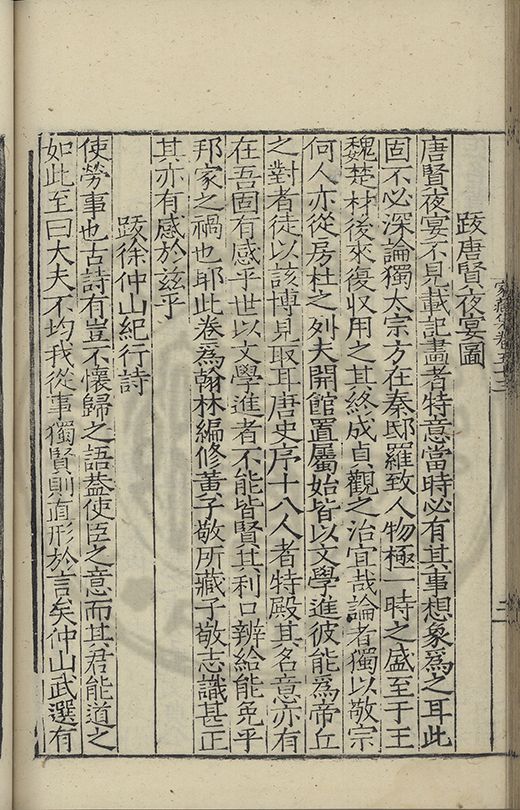 跋唐賢夜宴圖
唐賢夜宴不見載記畫者特意當時必有其事想象爲之耳此
固不必深論獨太宗方在秦邸羅致人物極一時之盛至于王
魏楚材後來復収用之其終成貞觀之治宜哉論者獨以敬宗
何人亦從房杜之列夫開館置屬始皆以文學進彼能爲帝丘
之對者徒以該博見取耳唐史序十八人者特殿其名意亦有
在吾固有感乎世以文學進者不能皆賢其利口辨給能免乎
邦家之禍也耶此卷爲翰林編修董子敬所藏子敬志識甚正
其亦有感於兹乎
跋徐仲山紀行詩
使勞事也古詩有豈不懷歸之語葢使臣之意而其君能道之
如此至曰大夫不均我從事獨賢則直形於言矣仲山武選有